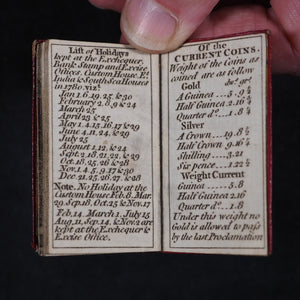 List of Holidays
kept at the Exchequer,
Bank Stamp and Excise
Offices. Custom House Et.
India & South Sea Houses
in 1780. viz.
Jan. 1. 6. 19. 25. & 30
February 2. 8. 9. & 24
March 25
April 23 & 25
May 1. 4. 15. 16. 17. & 29
June 4. 11. 24. & 29
July 25
August 1. 12. & 24
Sept. 2. 18. 21. 22. & 29
Oct. 18. 25. 26 & 28
Nov. 1. 4. 5. 9. 17 & 30
Dec. 21. 25. 26. 27. & 28
Note. No Holiday at the
Custom House Feb. 8. Mar.
29. Sep. 18. Oct. 25 & Nov. 17
Feb. 14. March 1. July 15
Aug. 11. Sep. 14. & Nov. 2 are
kept at the Exchequer &
Excise Office.
Of the
CURRENT COINS.
Weight of the Coins as
coined are as follow
Gold
A Guinea
Half Guinea
Quarter do.
Silver
A Crown
Half Crown
Shilling
Six pence
Weight Current
Guinea 5. 8
Half Guinea 2. 16
Quarter do. 1. 8
Under this weight no
Gold is allowed to pass
by the last Proclamation